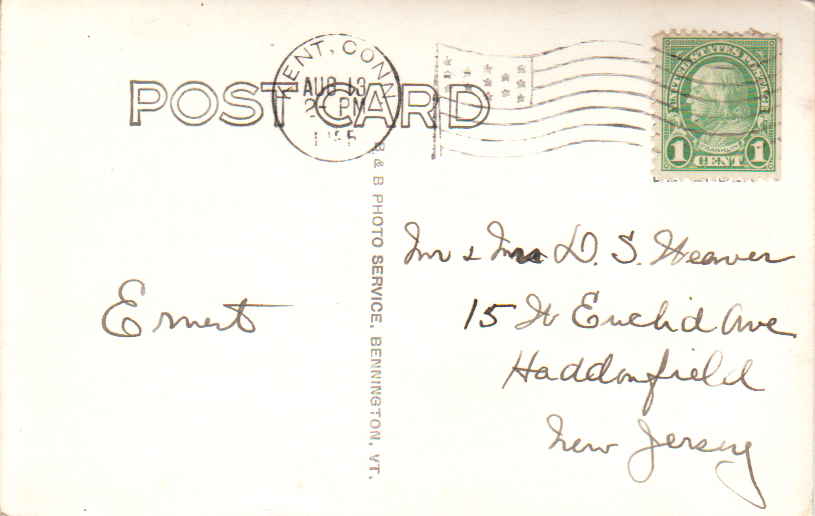 POST CARD
KENT, CONN
AUG 13
2 PM
UNITED STATES POSTAGE
1 CENT 1
B & B PHOTO SERVICE, BENNINGTON, VT.
Ernest
Mr & Mrs D. S. Weaver
15 W Euclid Ave
Haddonfield
New Jersey